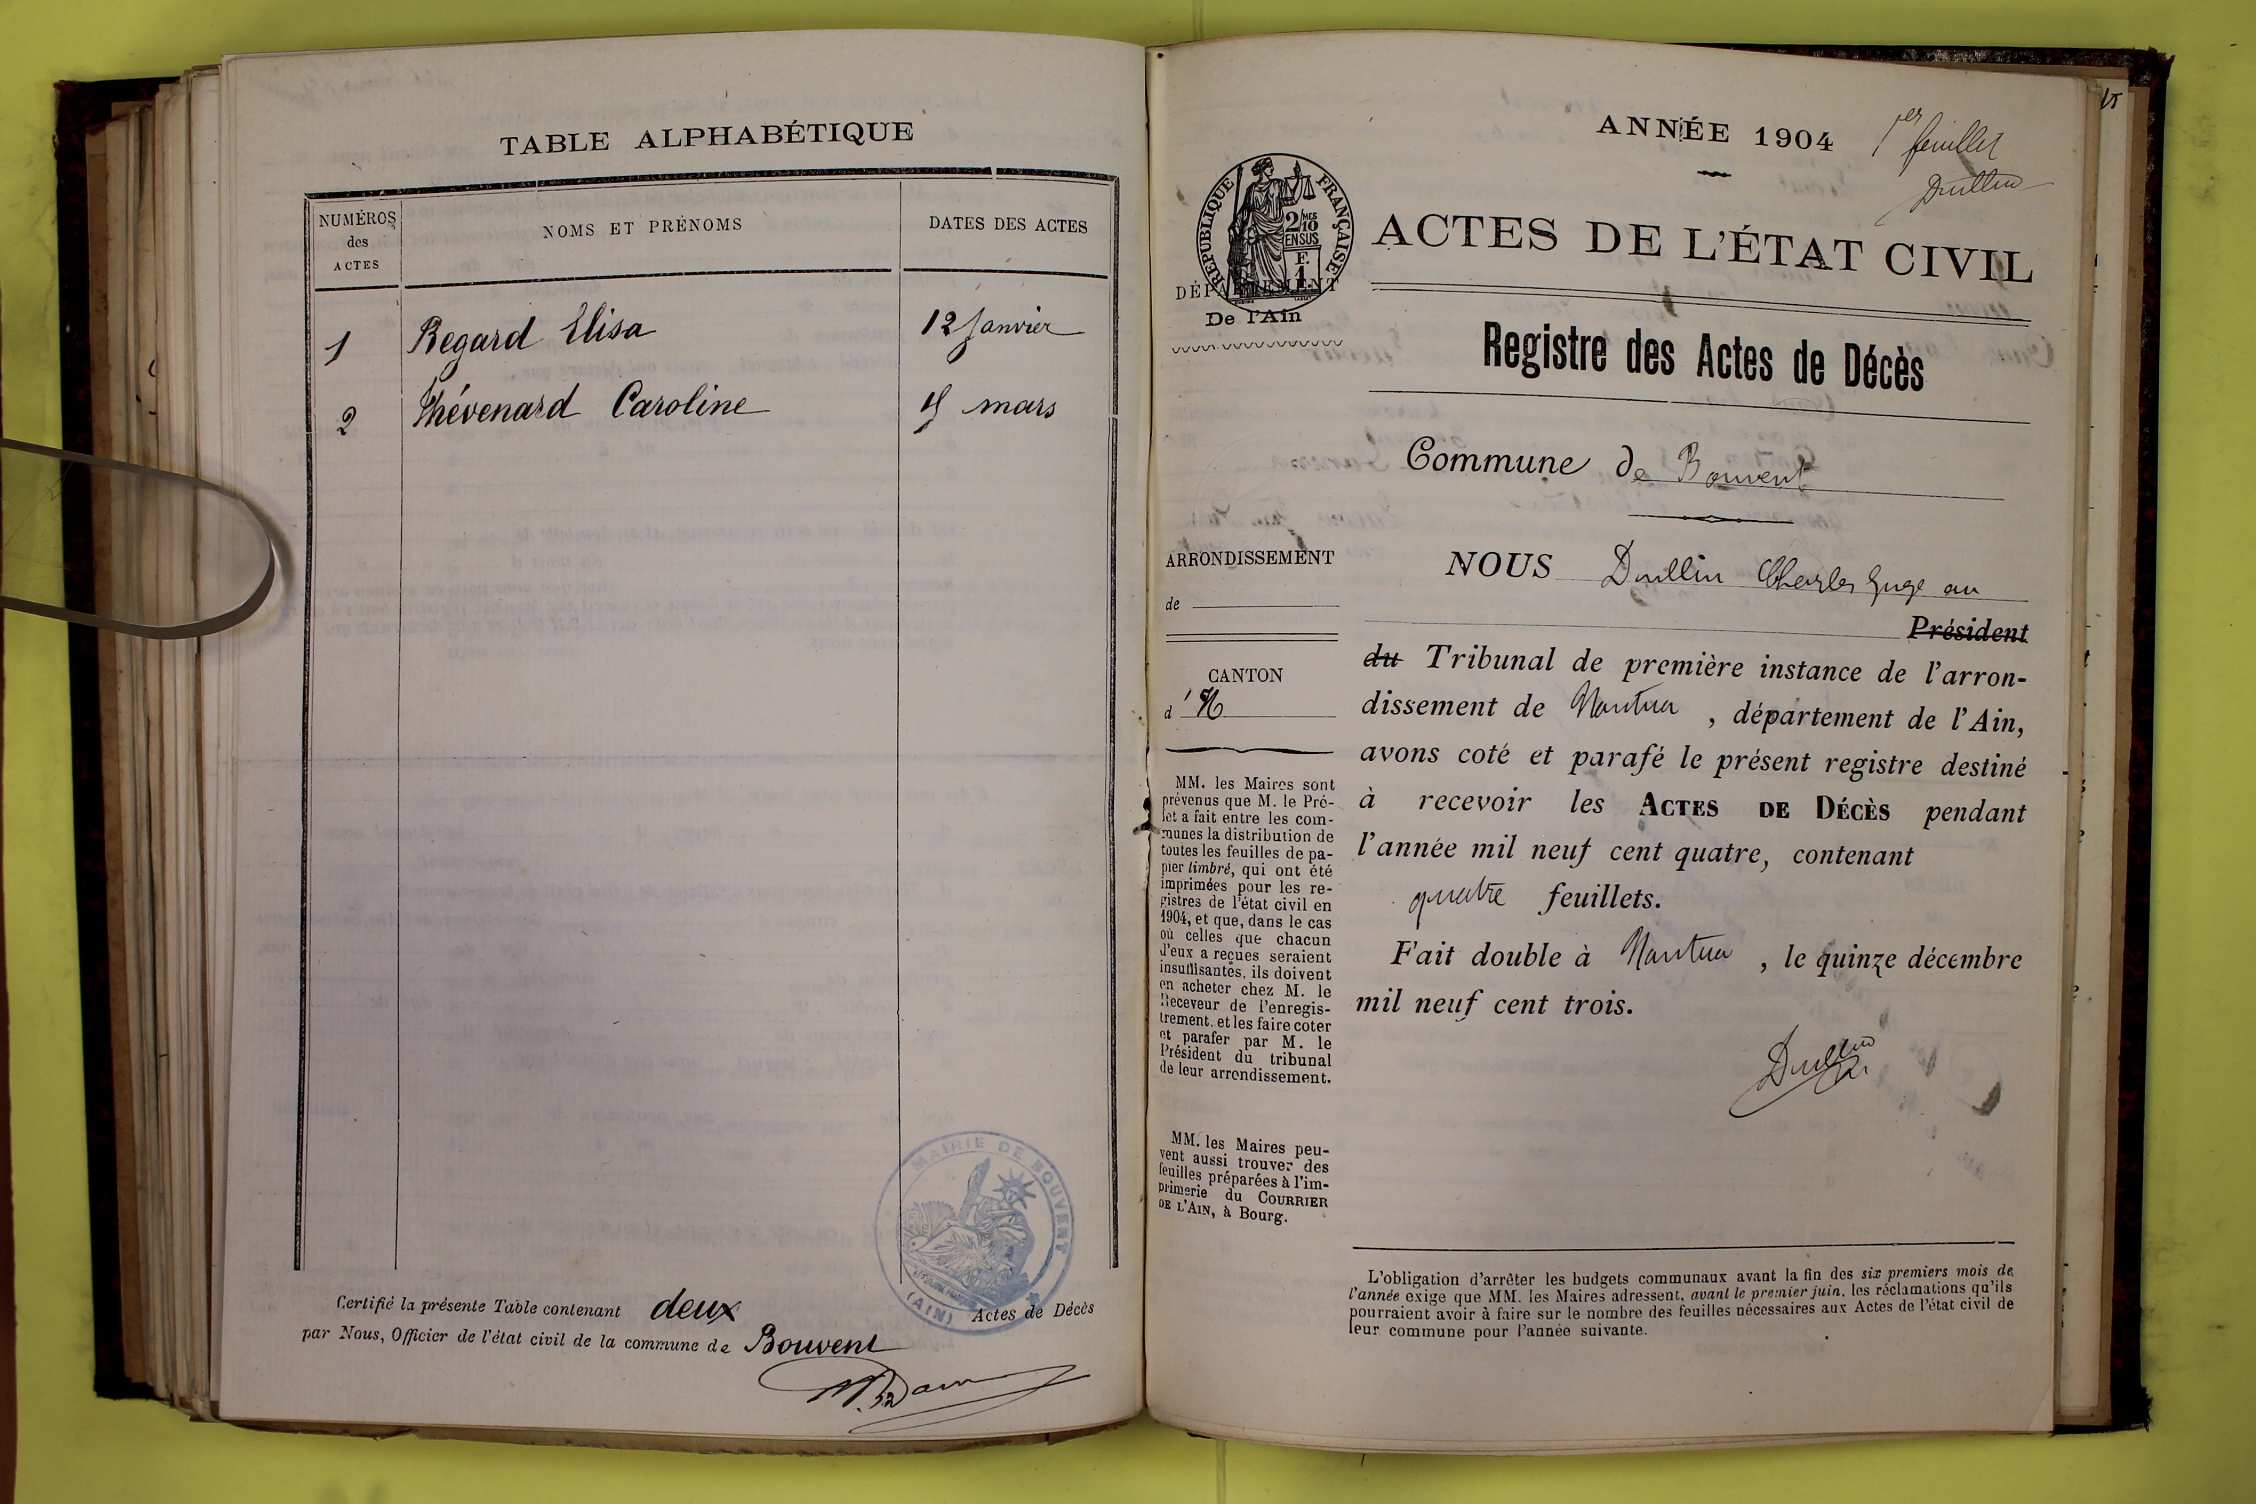 TABLE ALPHABÉTIQUE
NUMÉROS
des
ACTES
NOMS ET PRÉNOMS
DATES DES ACTES
1 Regard Elisa 12 Janvier
2 Thévenard Caroline mars
MAIRIE DE BOUVENT
(AIN)
Certifié la présente Table contenant deux Actes de Décès
par Nous, Officier de l'état civil de la commune de Bouvent
ANNÉE 1904
1er feuillet
Dullin
RÉPUBLIQUE FRANÇAISE
2/10MES
EN SUS
F.
1
DÉPARTEMENT
De l'Ain
ACTES DE L'ÉTAT CIVIL
Registre des Actes de Décès
Commune de Bouvent
ARRONDISSEMENT
de
CANTON
d'
MM. les Maires sont
prévenus que M. le Pré-
fet a fait entre les com-
munes la distribution de
toutes les feuilles de pa-
pier timbré, qui ont été
imprimées pour les re-
gistres de l'état civil en
1904, et que, dans le cas
où celles que chacun
d'eux a reçues seraient
insuffisantes, ils doivent
en acheter chez M. le
Receveur de l'enregis-
trement, et les faire coter
et parafer par M. le
Président du tribunal
de leur arrondissement.
MM. les Maires peu-
vent aussi trouver des
feuilles préparées à l'im-
primerie du COURRIER
DE L'AIN, à Bourg.
NOUS Dullin Charles Juge au
Président
du Tribunal de première instance de l'arron-
dissement de Nantua, département de l'Ain,
avons coté et parafé le présent registre destiné
à recevoir les ACTES DE DÉCÈS pendant
l'année mil neuf cent quatre, contenant
quatre feuillets.
Fait double à Nantua, le quinze décembre
mil neuf cent trois.
Dullin
L'obligation d'arrêter les budgets communaux avant la fin des six premiers mois de
l'année exige que MM. les Maires adressent, avant le premier juin, les réclamations qu'ils
pourraient avoir à faire sur le nombre des feuilles nécessaires aux Actes de l'état civil de
leur commune pour l'année suivante.